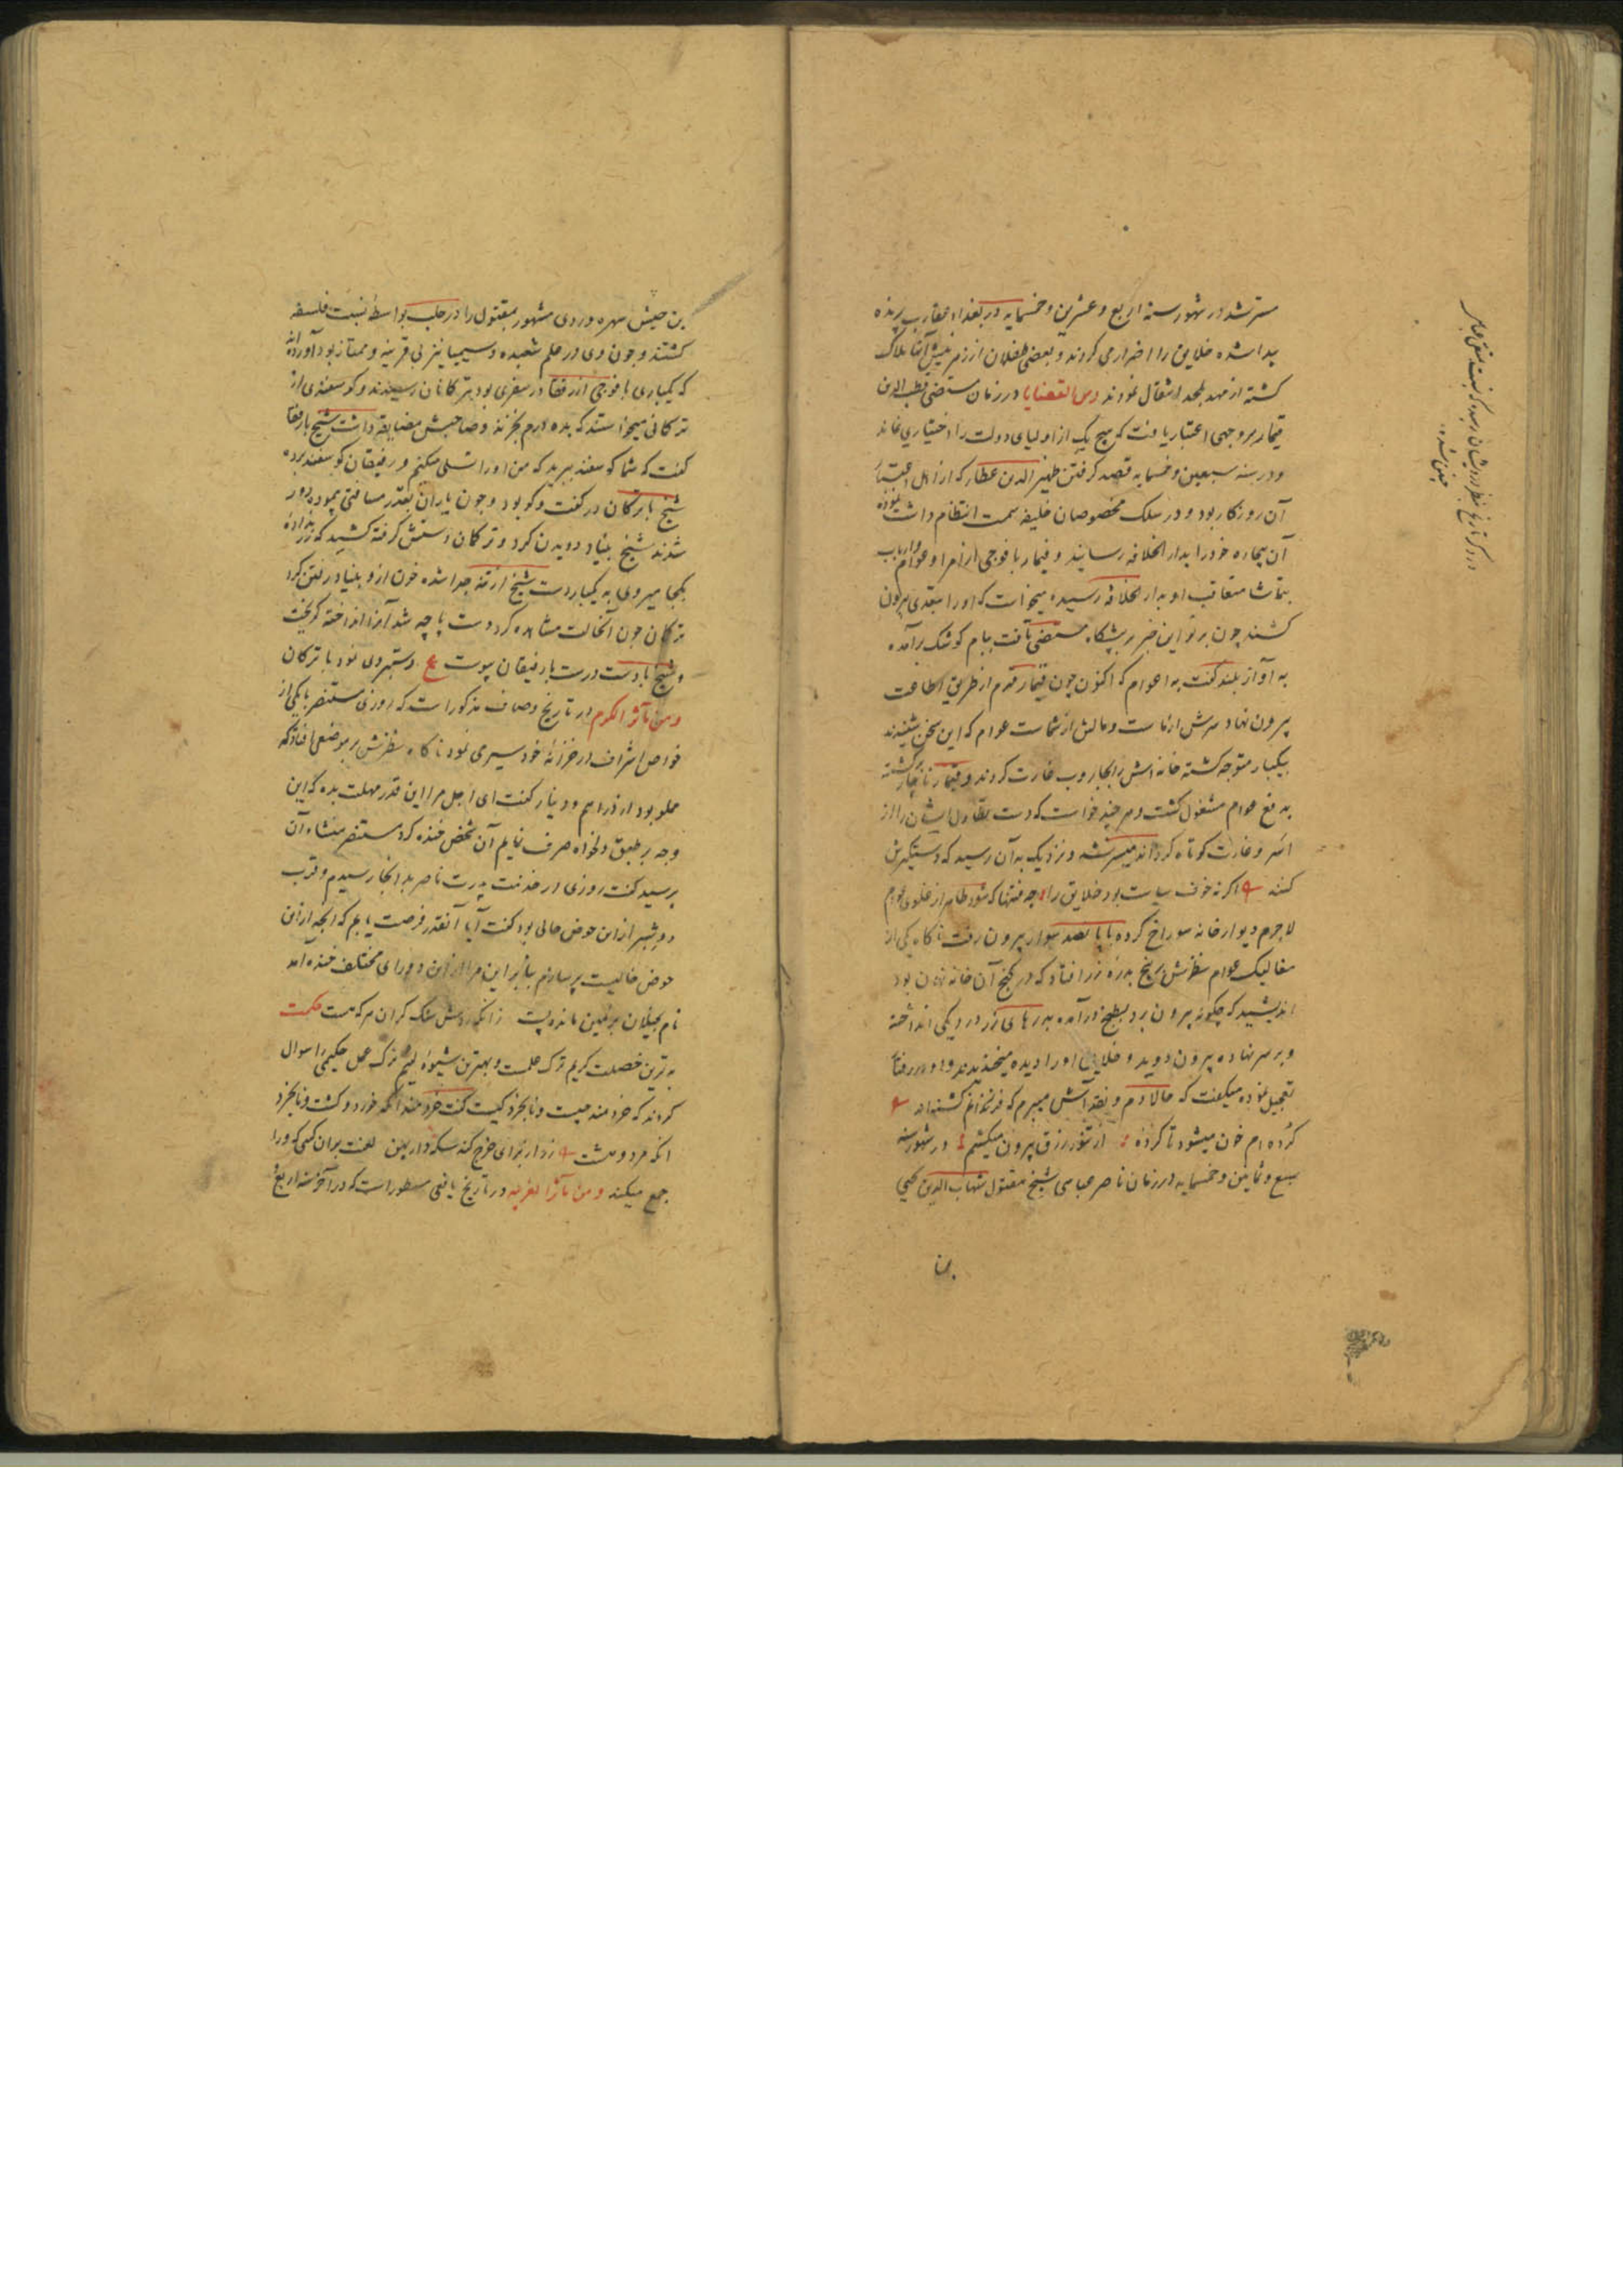 مسترشد در شهور سنه اربع و عشرین و خمسمایه در بغداد عقارب پرنده
پیدا شده خلایق را اضرار می کردند و بعضی طفلان از زمر نیش آنها هلاک
کشته از مهد بلحد انتقال نمودند ومن القضایا در زمان مستضی قطب الدین
قیماز بر وجهی اعتبار یافت که هیچ یک از اولیای دولت را اختیاری نماند
و در سنه سبعین و خمسمایه قصد کرفتن ظهیر الدین عطار که از اهل اعتبار
آن روزکار بود و در سلک مخصوصان خلیفه سمت انتظام داشت نموده
آن بیچاره خود را بدار الخلافه رسانید و قیماز با فوجی از امرا و عوام و ارباب
متعاقب او بدار الخلافه رسیده میخواست که او را بتعدی بیرون
کشند چون پرتو این خبر بر پیشکاه مستضی تافت ببام کوشک برآمده
به آواز بلند کفت به اعوام که اکنون چون قیماز قدم از طریق اطاعت
بیرون نهاد سرش از ماست و مالش از شماست عوام که این سخن شنیدند
بیکبار متوجه کشته خانه اش را بجاروب غارت کردند و قیماز ناچار برکشته
به دفع عوام مشغول کشت و هر چند خواست که دست تطاول ایشان را از
اسر و غارت کوتاه کرداند میسر نشد و نزدیک به آن رسید که دستکیرش
کنند اکر نه خوف سیاست بود خلایق را چه فتنها که شود ظاهر از غلوی عوام
لاجرم دیوار خانه سوراخ کرده با پانصد سوار بیرون رفت ناکاه یکی از
صعالیک عوام نظرش بر پنج بدره زر افتاد که در کنج آن خانه نهان بود
اندیشید که چکونه بیرون برد بمطبخ درآمده بدرهای زر در دیکی انداخته
و بر سر نهاده بیرون دوید و خلایق او را دیده میخندیدند و او در رفتار
تعجیل نموده میکفت که حالا دم و نقد آش میبرم که فرزندانم کشنه اند
کرده ام خون میشود تا کرده از تنور رزق بیرون میکشم در شهور سنه
سبع و ثمانین و خمسمایه در زمان ناصر عباسی شیخ مقتول شهاب الدین یحیی
بن
بن حبش سهروردی مشهور بمقتول را در حلب بواسطه نسبت فلسفه
کشتند و چون وی در علم شعبده و سیمیا نیز بی قرینه و ممتاز بود آورده اند
که یکباری با فوجی از رفقا در سفری بود بترکانان رسیدند و کوسفندی از
ترکانی میخواستند که بده درم بخرند و صاحبش مضایقه داشت شیخ با رفقا
کفت که شما کوسفند ببرید که من او را تسلی میکنم و رفیقان کوسفند برده
شیخ با ترکان در کفت وکو بود و چون یاران بقدر مسافتی پیموده دور
شدند شیخ بنیاد دویدن کرد و ترکمان دستش کرفته کشید که زر نداده
بکجا میروی به یکبار دست شیخ از تنه جدا شده خون از و بنیاد رفتن کرد
ترکان چون آنحالت مشاهده کرد دست پاچه شد آنرا انداخته کریخت
و شیخ با دست درست با رفیقان پیوست ع دستبردی نمود با ترکان
ومن مآثر الکرم در تاریخ وصاف مذکور است که روزی مستنصر با یکی از
خواص اشراف در خزانه خود سیری نمود ناکاه نظرش بر موضعی افتاد که
مملو بود از دراهم و دینار کفت ای اجل مرا این قدر مهلت بده که این
وجه بر طبق دلخواه صرف نمایم آن شخص خنده کرد مستنصر منشاء آن
پرسید کفت روزی در خدمت پدرت ناصر بدانجا رسیدم و قرب
دو شبر از این حوض خالی بود کفت آیا آنقدر فرصت یابم که آنچه از این
حوض خالیست پر سازم بنابراین مرا از این دو رای مختلف خنده آمد
نام بخیلان بزمین مانده پست زانکه زرش سنک کران مرکبست حکمت
بدترین خصلت کریم ترک حلمست و بهترین شیوه لئیم ترک عمل حکیمی را سوال
کردند که خردمند چیست و نابخرد کیست کفت خردمند آنکه خورد و کشت و نابخرد
انکه مرد و هشت زر از برای خرج کند سکه دار بین لعنت بر آن کسی که ورا
جمع میکند ومن مآثر الغریبه در تاریخ یافعی مسطور است که در آخر سنه اربع